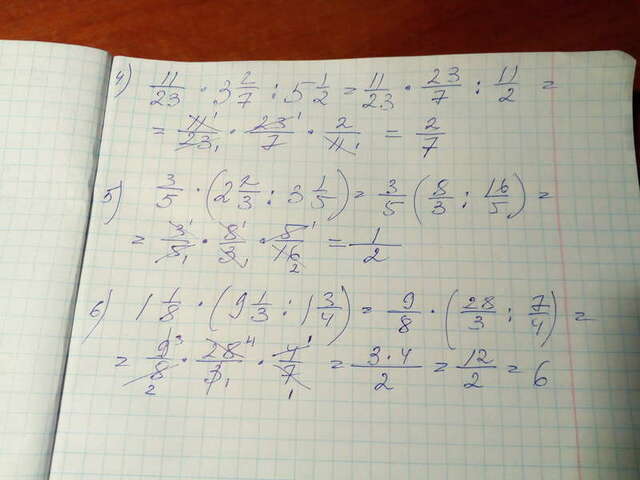 4) 11/23 · 3 2/7 : 5 1/2 = 11/23 · 23/7 : 11/2 =
= 11¹/23₁ · 23¹/7 · 2/11₁ = 2/7
5) 3/5 · (2 2/3 : 3 1/5) = 3/5 (8/3 : 16/5) =
= 3¹/5₁ · 8¹/3₁ · 5¹/16₂ = 1/2
6) 1 1/8 · (9 1/3 : 1 3/4) = 9/8 · (28/3 : 7/4) =
= 9³/8₂ · 28⁴/3₁ · 4¹/7₁ = 3·4/2 = 12/2 = 6